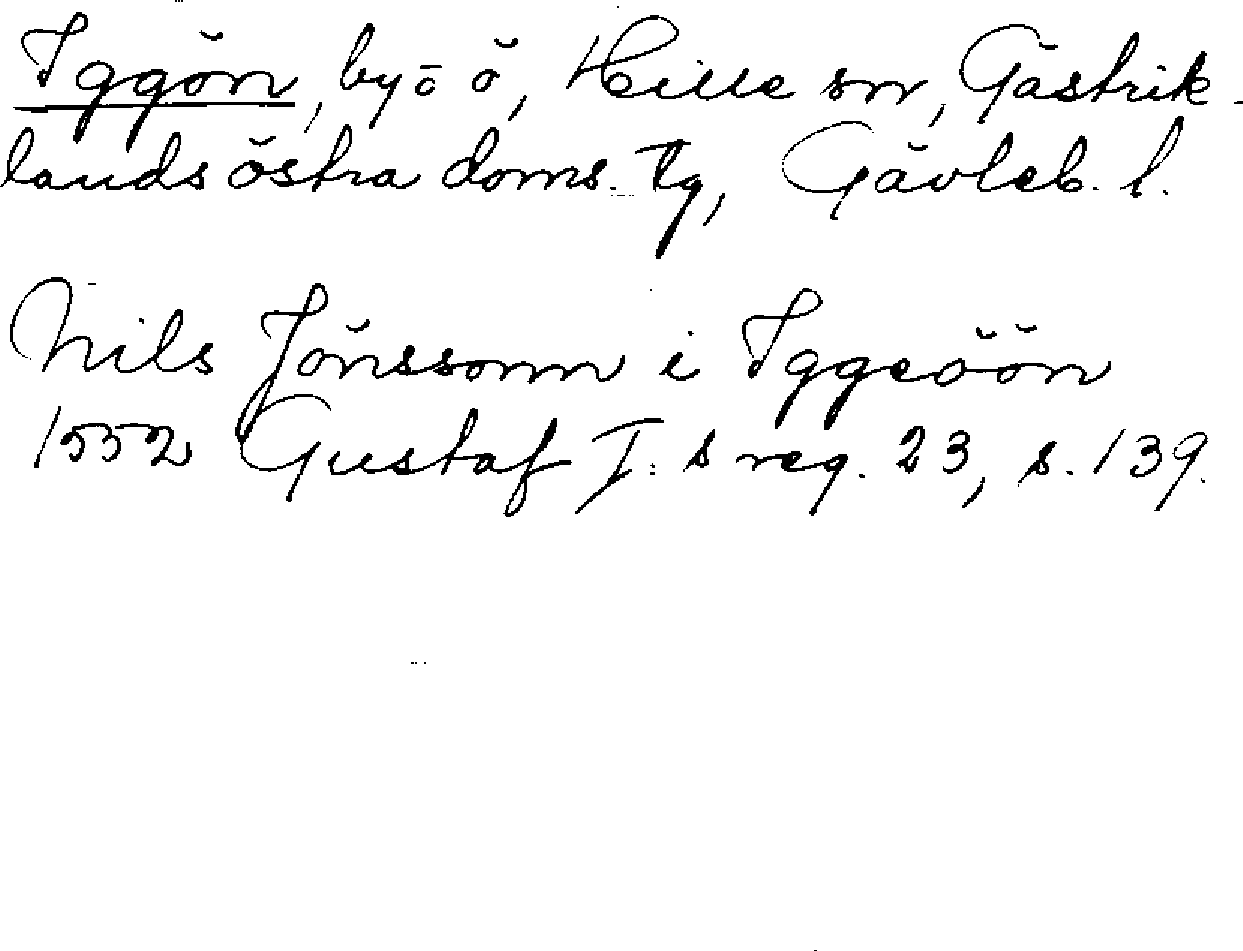 Iggön, by o ö, Hille sn, Gästrik-
lands östra doms. tg, Gävleb. l.
Nils Jönssonn i Iggeöön
1552 Gustaf I: s reg. 23, s. 139.